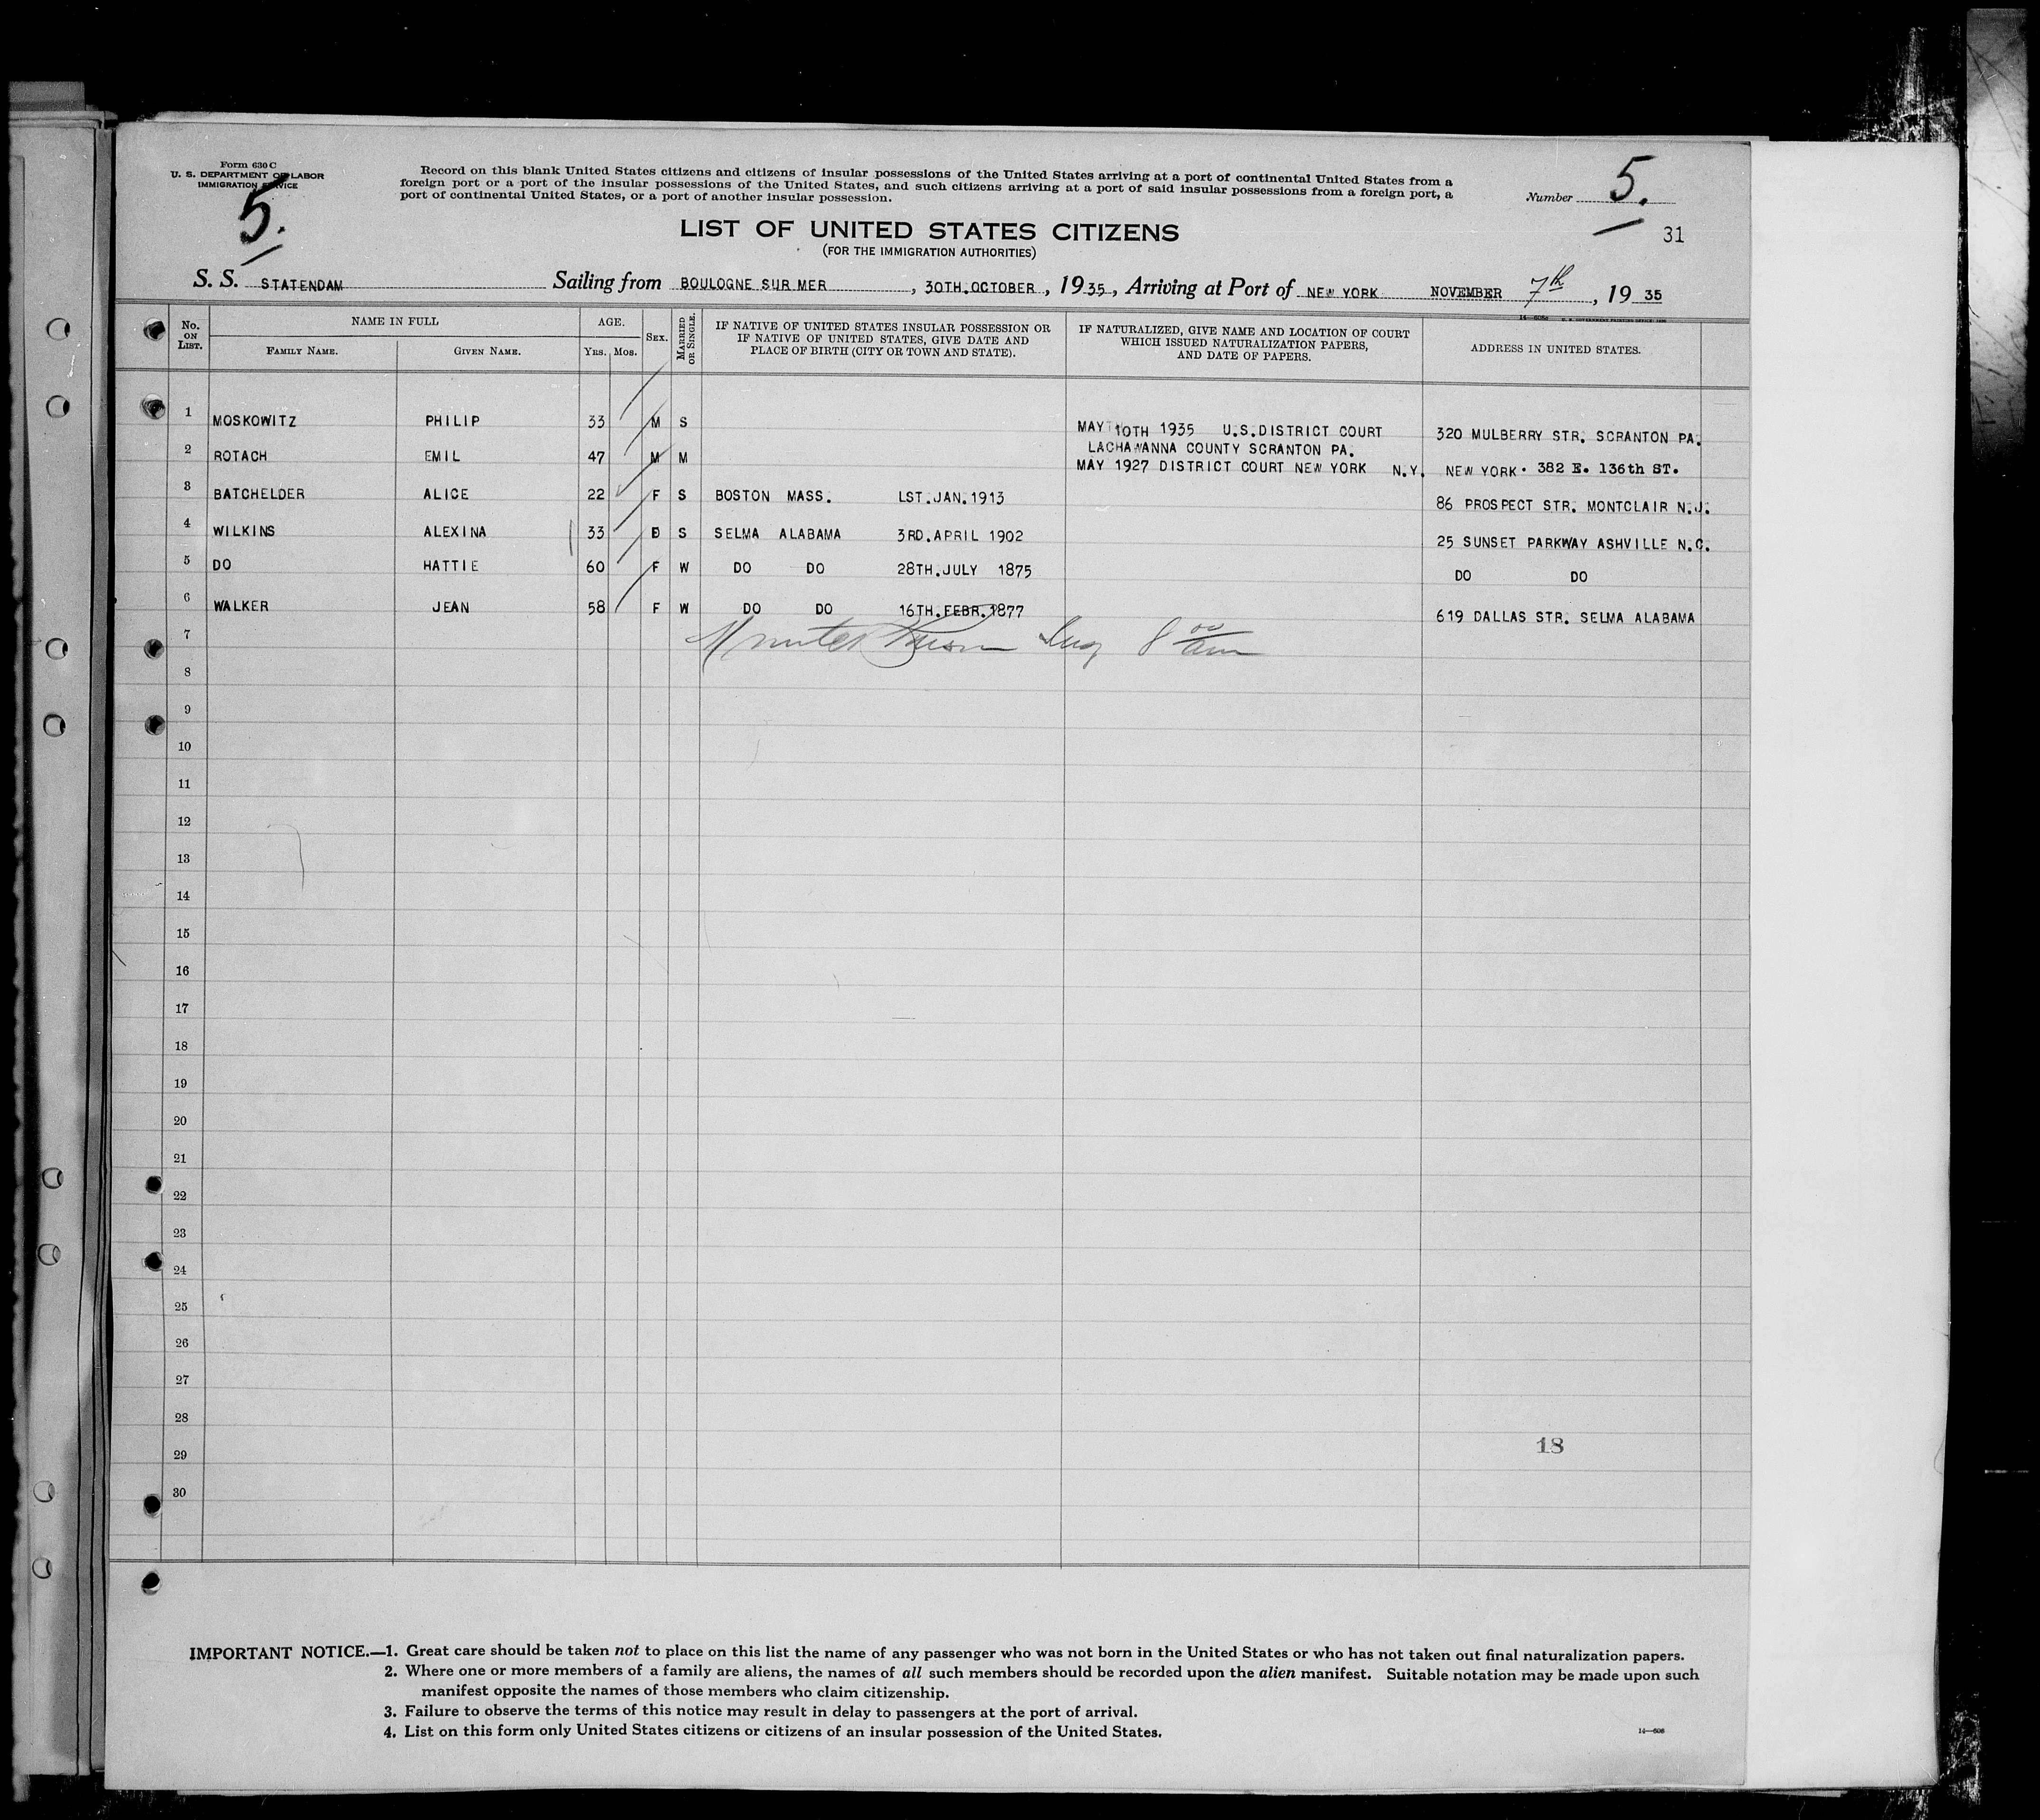 Form 630 C
U. S. DEPARTMENT OF LABOR
IMMIGRATION SERVICE
5.
Record on this blank United States citizens and citizens of insular possessions of the United States arriving at a port of continental United States from a
foreign port or a port of the insular possessions of the United States, and such citizens arriving at a port of said insular possessions from a foreign port, a
port of continental United States, or a port of another insular possession.
Number 5.
31
LIST OF UNITED STATES CITIZENS
(FOR THE IMMIGRATION AUTHORITIES)
S. S. STATENDAM Sailing from BOULOGNE SUR MER, 30TH.OCTOBER, 1935, Arriving at Port of NEW YORK NOVEMBER 7th, 19 35
No. ON LIST. NAME IN FULL FAMILY NAME. GIVEN NAME. AGE. YRS. MOS. SEX. MARRIED OR SINGLE.
IF NATIVE OF UNITED STATES INSULAR POSSESSION OR
IF NATIVE OF UNITED STATES, GIVE DATE AND
PLACE OF BIRTH (CITY OR TOWN AND STATE).
IF NATURALIZED, GIVE NAME AND LOCATION OF COURT
WHICH ISSUED NATURALIZATION PAPERS,
AND DATE OF PAPERS.
ADDRESS IN UNITED STATES.
1 MOSKOWITZ PHILIP 33 M S MAY 10TH 1935 U.S.DISTRICT COURT 320 MULBERRY STR. SCRANTON PA.
LACHAWANNA COUNTY SCRANTON PA.
2 ROTACH EMIL 47 M M MAY 1927 DISTRICT COURT NEW YORK N.Y. NEW YORK. 382 E. 136th ST.
3 BATCHELDER ALICE 22 F S BOSTON MASS. LST.JAN.1913 86 PROSPECT STR. MONTCLAIR N.J.
4 WILKINS ALEXINA 33 S SELMA ALABAMA 3RD.APRIL 1902 25 SUNSET PARKWAY ASHVILLE N.C.
5 DO HATTIE 60 F W DO DO 28TH.JULY 1875 DO DO
6 WALKER JEAN 58 F W DO DO 16TH.FEBR.1877 619 DALLAS STR. SELMA ALABAMA
7 8 00 am
8
9
10
11
12
13
14
15
16
17
18
19
20
21
22
23
24
25
26
27
28
18
29
30
IMPORTANT NOTICE.—1. Great care should be taken not to place on this list the name of any passenger who was not born in the United States or who has not taken out final naturalization papers.
2. Where one or more members of a family are aliens, the names of all such members should be recorded upon the alien manifest. Suitable notation may be made upon such
manifest opposite the names of those members who claim citizenship.
3. Failure to observe the terms of this notice may result in delay to passengers at the port of arrival.
4. List on this form only United States citizens or citizens of an insular possession of the United States.
14—608